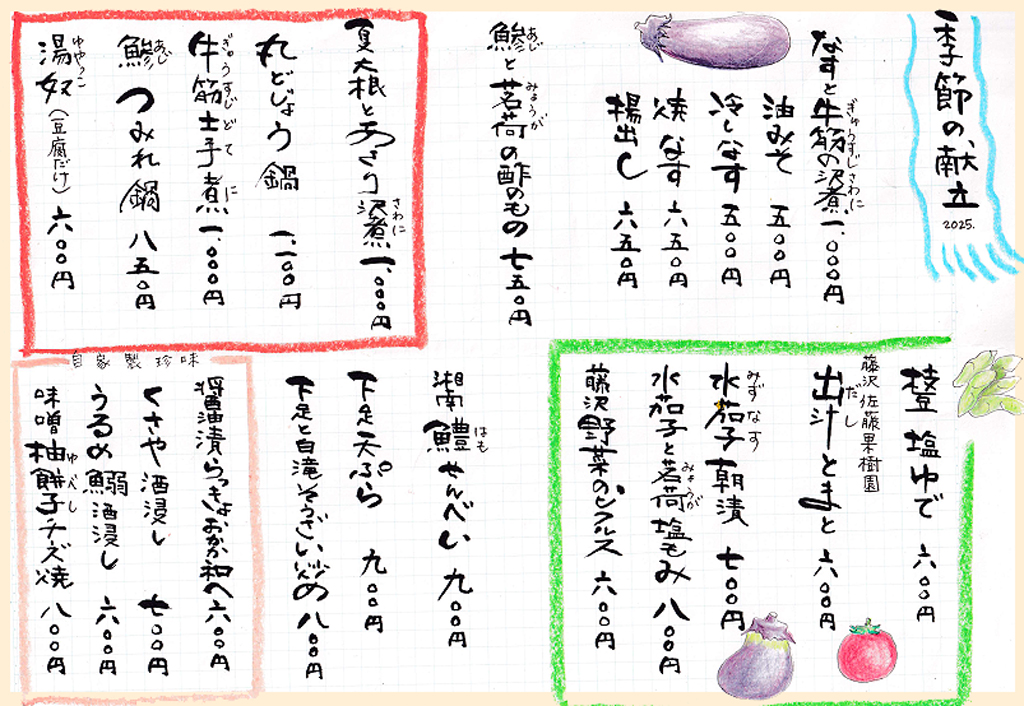 季節の、献立
2025.
なすと牛筋の沢煮 一、〇〇〇円
ぎゅうすじ さわに
油みそ 五〇〇円
冷しなす 五〇〇円
焼なす 六五〇円
揚出し 六五〇円
鯵と茗荷の酢のもの 七五〇円
あじ みょうが
夏大根とあさり沢煮 一、〇〇〇円
さわに
丸どじょう鍋 一、一〇〇円
牛筋土手煮 一、〇〇〇円
ぎゅうすじどて に
鯵つみれ鍋 八五〇円
あじ
湯奴(豆腐だけ) 六〇〇円
ゆやっこ
枝豆塩ゆで 六〇〇円
藤沢 佐藤果樹園
出汁とまと 六〇〇円
だし
水茄子朝漬 七〇〇円
みずなす
水茄子と茗荷塩もみ 八〇〇円
みょうが
藤沢野菜のピクルス 六〇〇円
湘南鱧せんべい 九〇〇円
はも
下足天ぷら 九〇〇円
下足と白滝そうざい炒め 八〇〇円
自家製珍味
醤油漬らっきょおかか和へ 六〇〇円
くさや酒浸し 七〇〇円
うるめ鰯酒浸し 六〇〇円
味噌柚餅子チーズ焼 八〇〇円
ゆべし